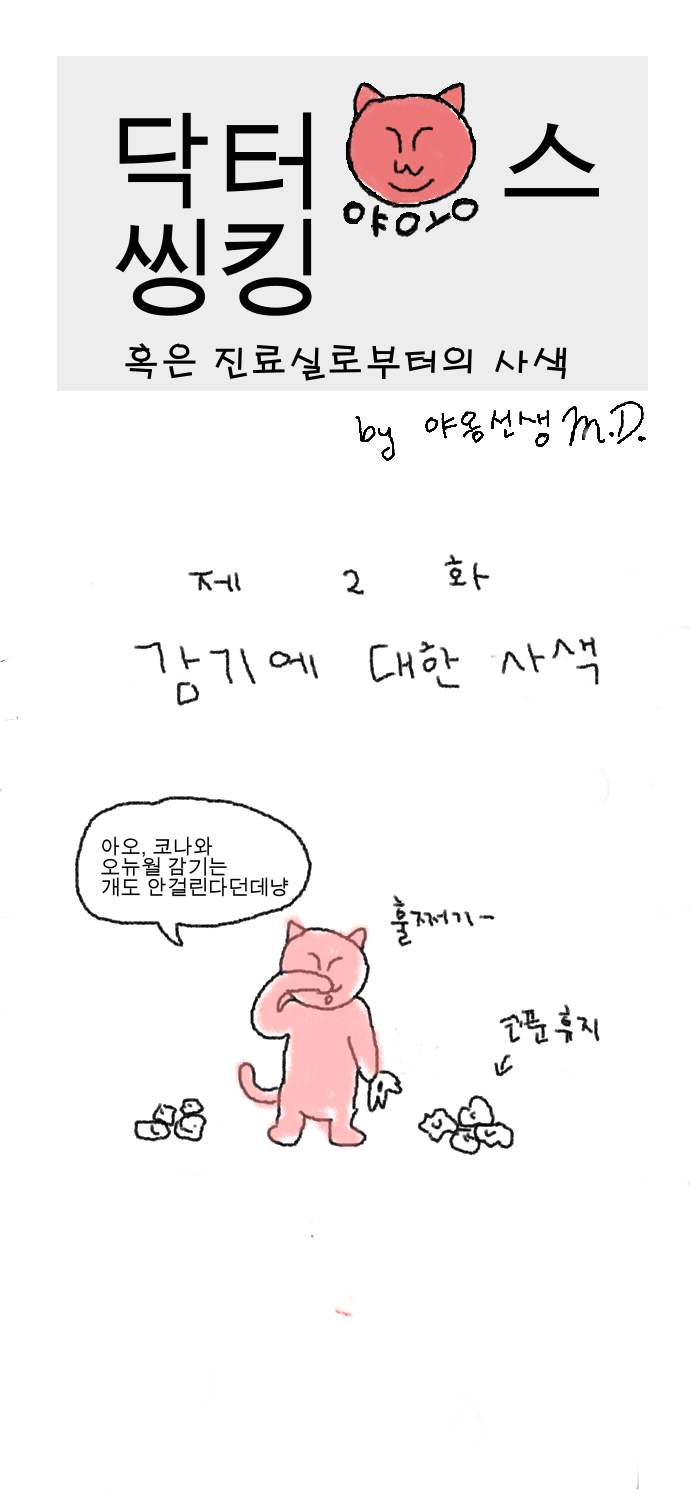 닥터 스
야아오
씽킹
혹은 진료실로부터의 사색
by 야옹선생 M.D.
제 2 화
감기에 대한 사색
아오, 코나와
오뉴월 감기는
개도 안걸린다던데냥
훌쩌기~
코푼 휴지